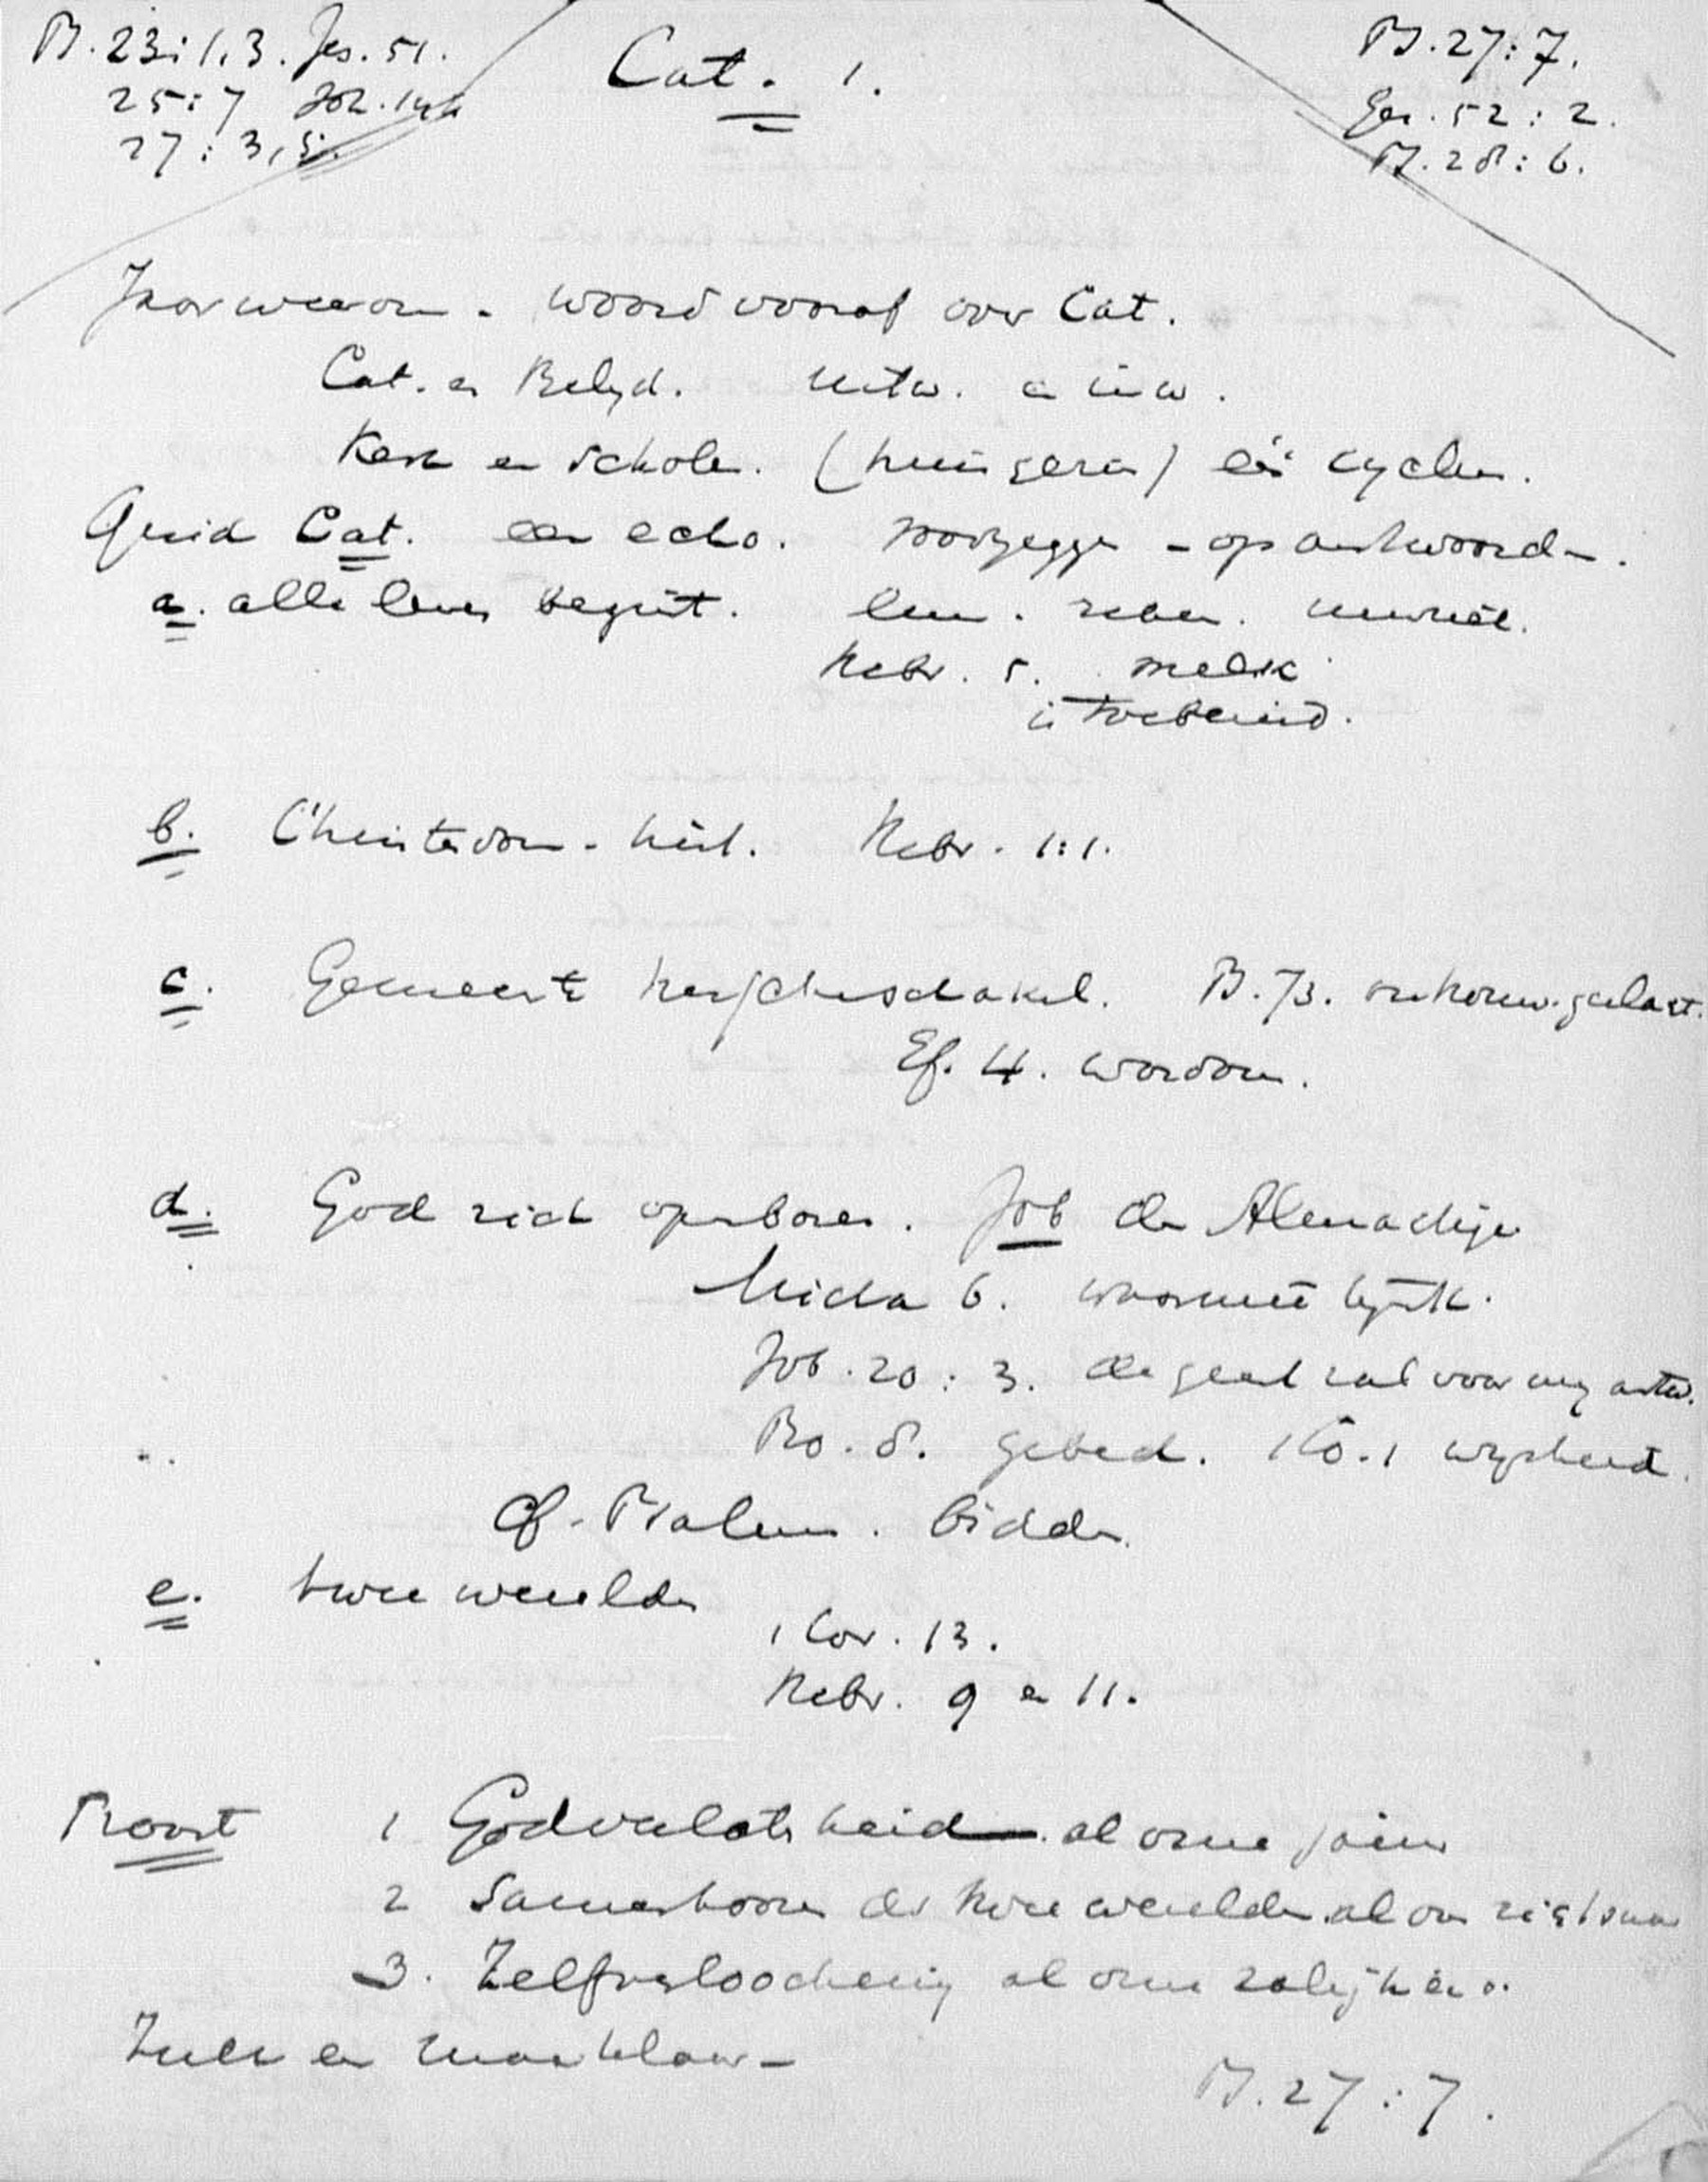 Ps. 23:1,3. Jes. 51.
25:7 Joh.
27:3,5.
Cat. 1.
Ps. 27:7.
Gez. 52:2.
Ps. 28:6.
Jaar weerom - woord vooraf over Cat.
Cat. en Belyd. uitw. en inw.
Kerk en scholen. (huisgezin) één cyclus.
Quid Cat. een echo. voorzeggen - op antwoorden.
a. alle leven begint.
Hebr. 5. melk
b. Christendom - hist. Hebr. 1:1.
c. Gemeente Ps. 73.
Ef. 4. worden.
d. God zich openbaren. Job de Almachtige
Micha 6. waarmeê
Job. 20:3. de geest zal voor my antw.
Ro. 8. gebed. 1 Co. 1 wysheid.
cf. Psalmen. bidden.
e. twee werelden
1 Cor. 13.
Hebr. 9 en 11.
Troost 1 Godverlatenheid al onze
2 Samenhoren der twee werelden al ons
3. Zelfverloochening al onze zaligheid.
en
Ps. 27:7.